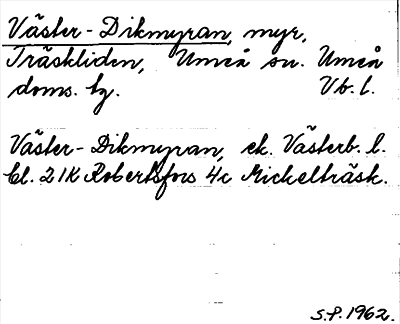 Väster-Dikmyran, myr,
Träskliden, Umeå sn. Umeå
doms. hg. Vb. l.
Väster-Dikmyran, ek. Västerb. l.
bl. 21K Robertsfors 4c Mickelträsk.
S.P. 1962.